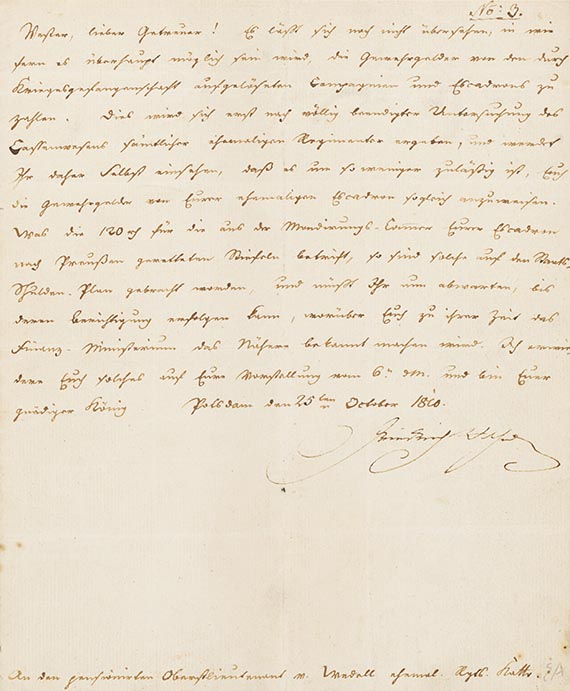 No: 3.
Vester, lieber Getreuer! Es läßt sich noch nicht übersehen, in wie
fern es überhaupt möglich sein wird, die Gewehrgelder von den durch
Kriegsgefangenschaft aufgelöseten Compagnien und Escadrons zu
zahlen. Dies wird sich erst nach völlig beendigter Untersuchung des
Cassenwesens sämtlicher ehemaligen Regimenter ergeben, und werdet
Ihr daher Selbst einsehen, daß es um so weniger zuläßig ist, Euch
die Gewehrgelder von Eurer ehemaligen Escadron sogleich anzuweisen.
Was die 120 rh für die aus der Mondirungs-Cammer Eurer Escadron
nach Preußen geretteten Stiefeln betrift, so sind solche auf den Staats-
Schulden-Plan gebracht worden, und müßt Ihr nun abwarten, bis
deren Berichtigung erfolgen kann, worüber Euch zu ihrer Zeit das
Finanz-Ministerium das Nähere bekannt machen wird. Ich erwie
dere Euch solches auf Eure Vorstellung vom 6. d.M. und bin Euer
gnädiger König Potsdam den 25ten October 1810.
Friedrich Wilhelm
An den pensionirten Oberstlieutenant v. Wedell ehemal. Rgts.